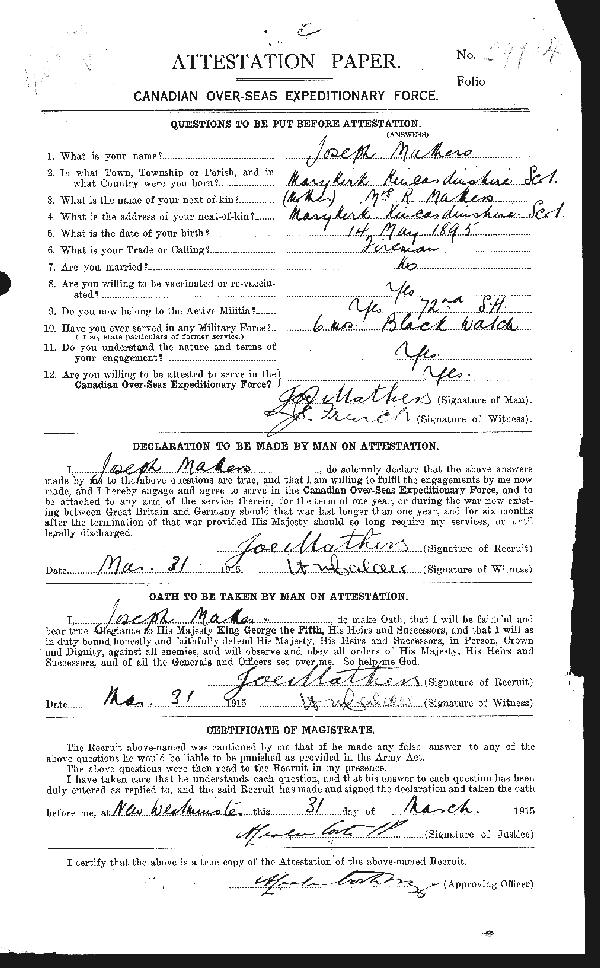 ATTESTATION PAPER.
No.
Folio
CANADIAN OVER-SEAS EXPEDITIONARY FORCE.
QUESTIONS TO BE PUT BEFORE ATTESTATION.
(ANSWERS)
1. What is your name? Joseph Mathers
2. In what Town, Township or Parish, and in
what Country were you born? Marykirk Kincardinshire Scot.
3. What is the name of your next-of-kin? (Mother) Mrs R Mathers
4. What is the address of your next-of-kin? Marykirk Kincardinshire Scot
5. What is the date of your birth? 14 May 1895
6. What is your Trade or Calling? Fireman
7. Are you married? No
8. Are you willing to be vaccinated or re-vaccin-
ated? Yes
9. Do you now belong to the Active Militia? Yes 72nd SH
10. Have you ever served in any Military Force? 6 mos Black Watch
( If so, state particulars of former service.)
11. Do you understand the nature and terms of
your engagement? Yes
12. Are you willing to be attested to serve in the
Canadian Over-Seas Expeditionary Force? Yes.
Joe Mathers (Signature of Man).
French (Signature of Witness).
DECLARATION TO BE MADE BY MAN ON ATTESTATION.
I, Joseph Mathers, do solemnly declare that the above answers
made by me to the above questions are true, and that I am willing to fulfil the engagements by me now
made, and I hereby engage and agree to serve in the Canadian Over-Seas Expeditionary Force, and to
be attached to any arm of the service therein, for the term of one year, or during the war now exist-
ing between Great Britain and Germany should that war last longer than one year, and for six months
after the termination of that war provided His Majesty should so long require my services, or until
legally discharged.
Joe Mathers (Signature of Recruit)
Date Mar. 31 1915 (Signature of Witness)
OATH TO BE TAKEN BY MAN ON ATTESTATION.
I, Joseph Mathers, do make Oath, that I will be faithful and
bear true Allegiance to His Majesty King George the Fifth, His Heirs and Successors, and that I will as
in duty bound honestly and faithfully defend His Majesty, His Heirs and Successors, in Person, Crown
and Dignity, against all enemies, and will observe and obey all orders of His Majesty, His Heirs and
Successors, and of all the Generals and Officers set over me. So help me God.
Joe Mathers (Signature of Recruit)
Date Mar. 31 1915 (Signature of Witness)
CERTIFICATE OF MAGISTRATE.
The Recruit above-named was cautioned by me that if he made any false answer to any of the
above questions he would be liable to be punished as provided in the Army Act.
The above questions were then read to the Recruit in my presence.
I have taken care that he understands each question, and that his answer to each question has been
duly entered as replied to, and the said Recruit has made and signed the declaration and taken the oath
before me, at New Westminster this 31 day of March. 1915
(Signature of Justice)
I certify that the above is a true copy of the Attestation of the above-named Recruit.
(Approving Officer)